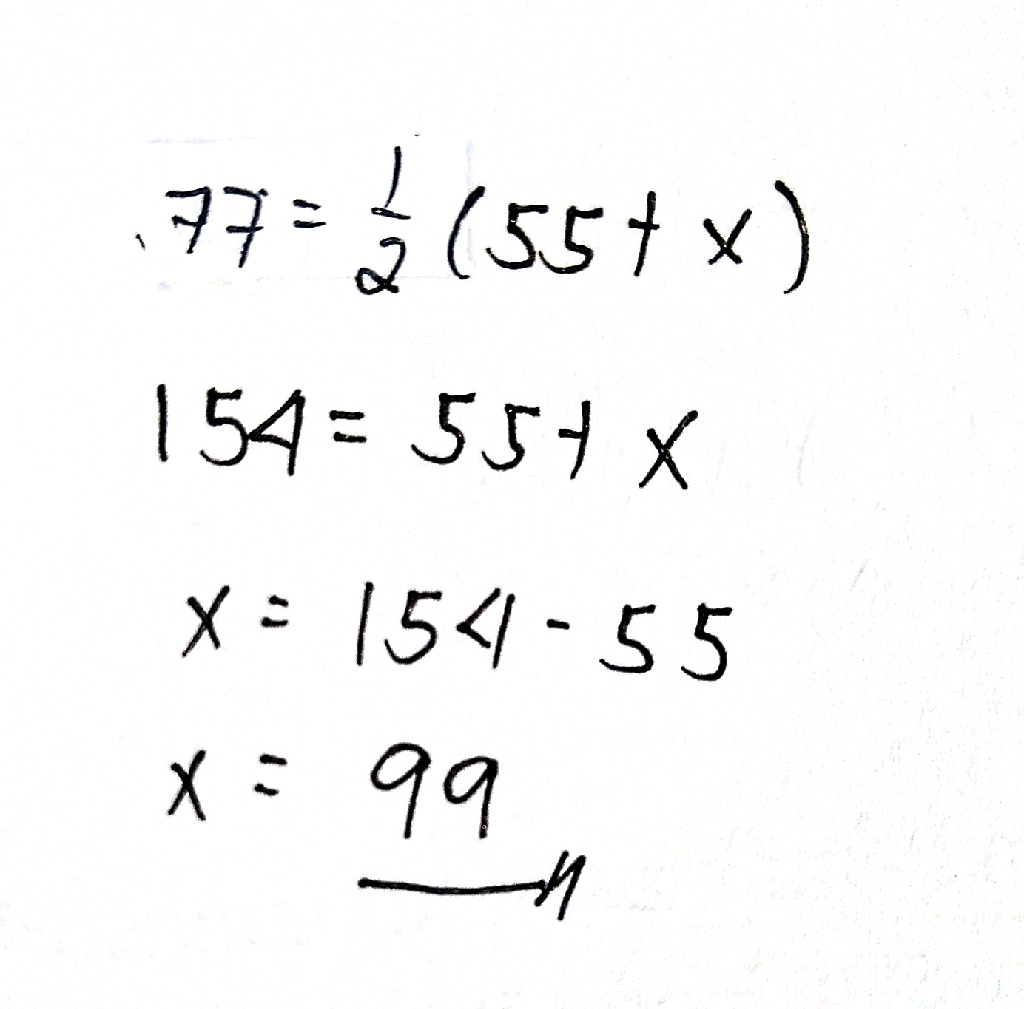 77 = 1/2 (55 + x)
154 = 55 + x
x = 154 - 55
x = 99